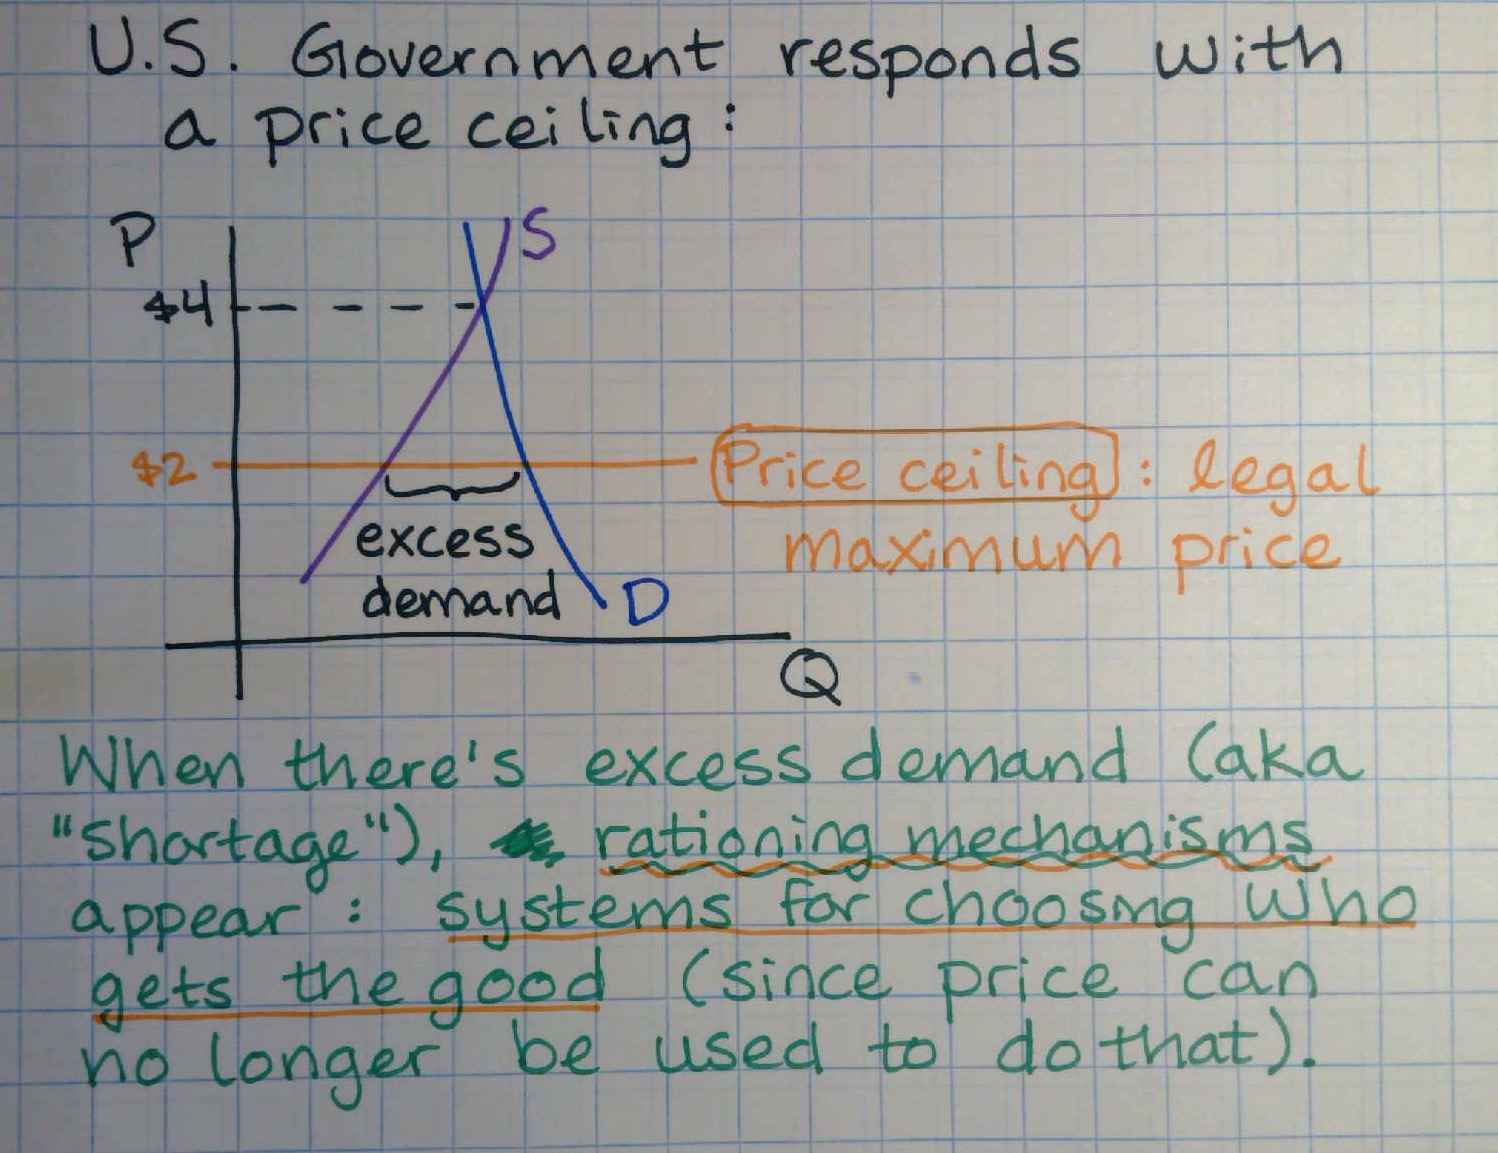 U.S. Government responds with
a price ceiling:
P
S
$4
$2
Price ceiling: legal
maximum price
excess
demand
D
Q
When there's excess demand (aka
"shortage"), rationing mechanisms
appear: systems for choosing who
gets the good (since price can
no longer be used to do that).